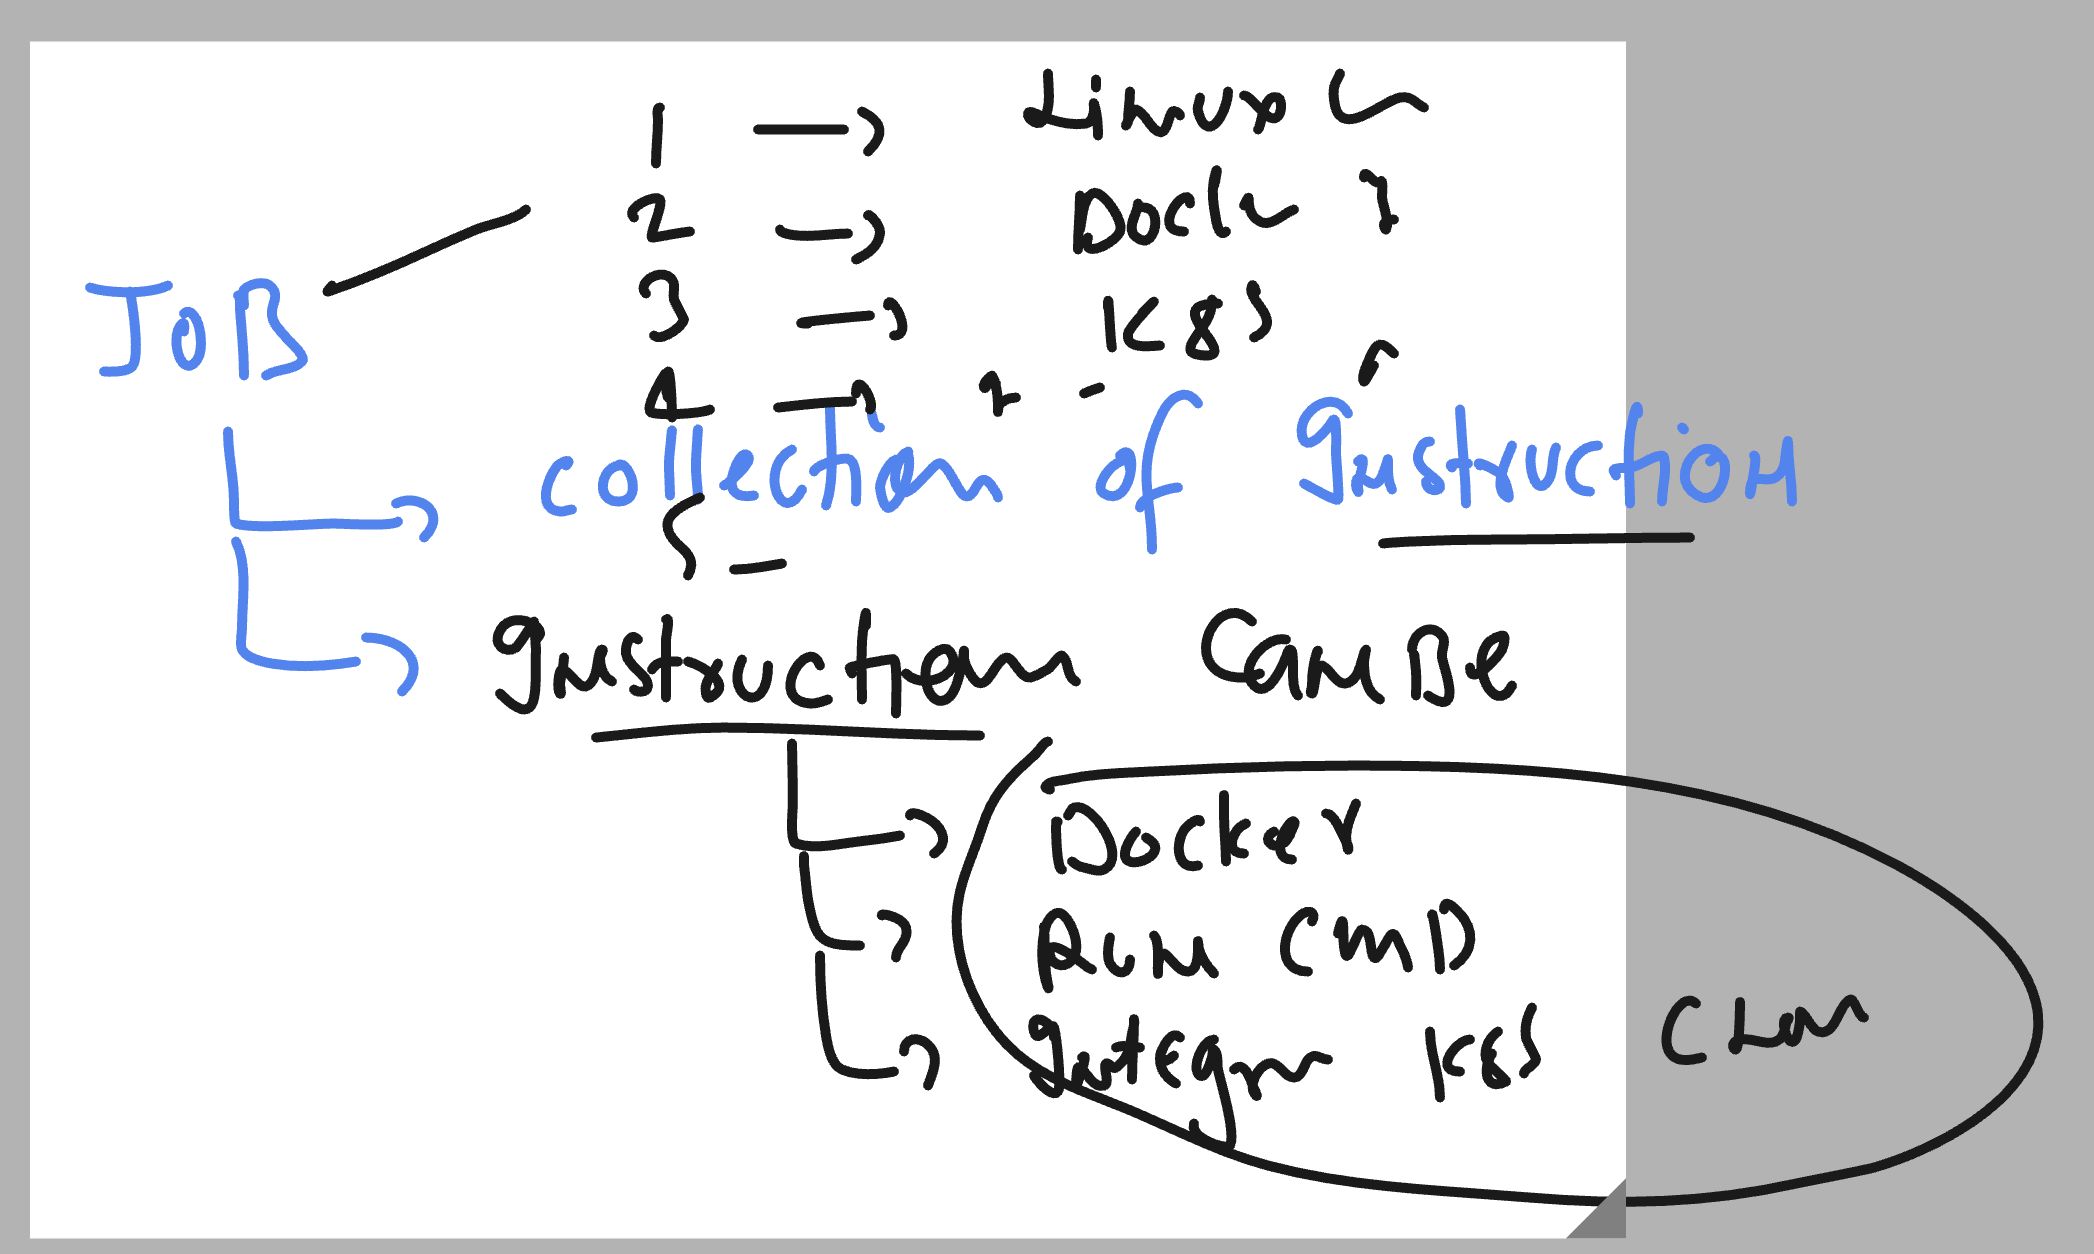 1 → Linux
2 → Docker
3 → K8S
JOB
4 →
collection of Instruction
5 -
Instruction Can Be
Docker
Run CMD
Integr K8S